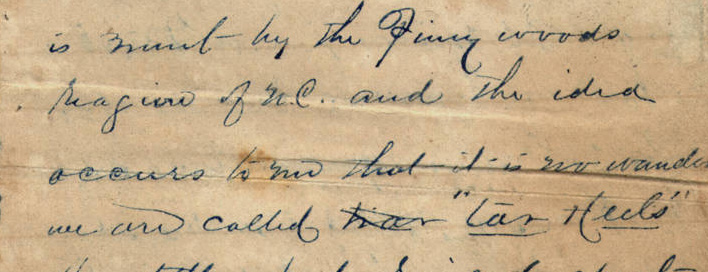 is ment by the Piney woods
Reagion of N.C. and the idea
occurs to me that it is no wander
we are called "Tar Heels"